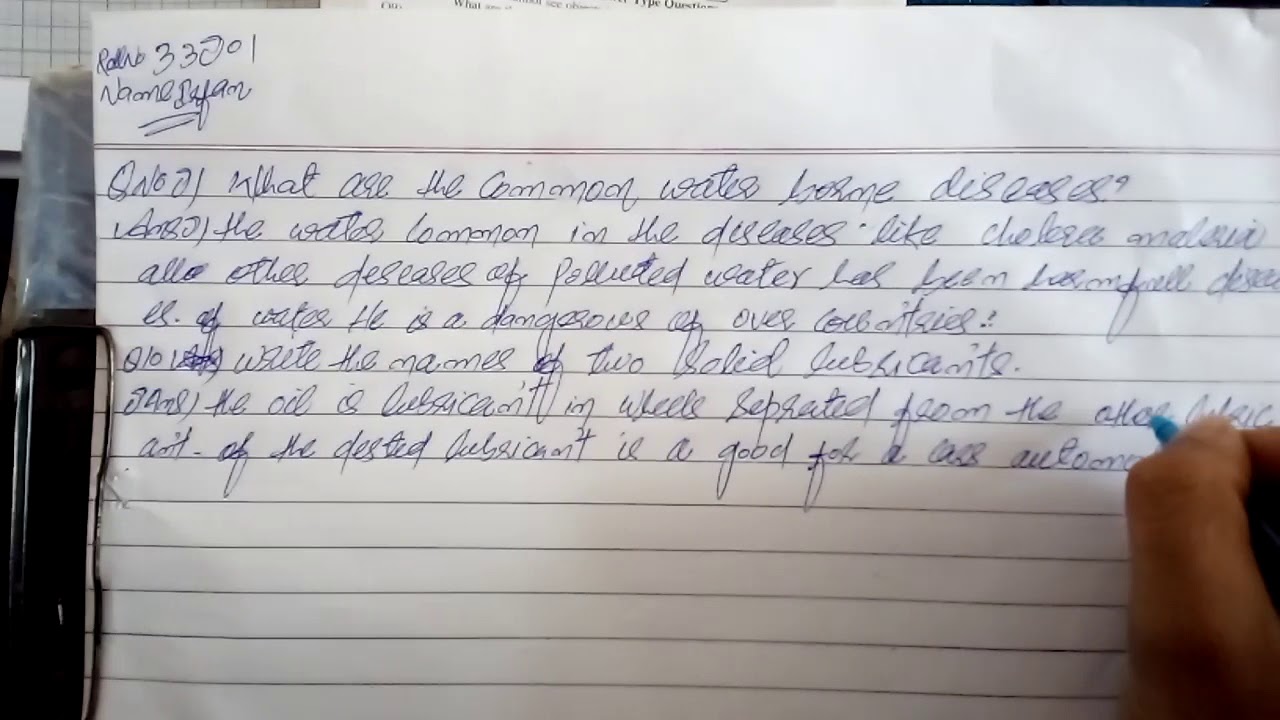 What Type Question
Roll No 33201
Name Irfan
QNo 2) What are the Common water borne diseases?
Ans2) the water Common in the diseases. like cholera malaria
all other deseases of Polluted water has been harmfull disea
es. of water He is a dangerous of over countries.:
write the names of two Solid lubricants.
Ans) the oil is lubricant in wheels Seprated from the other lubric
ant. of the dested lubricant is a good for a car automo